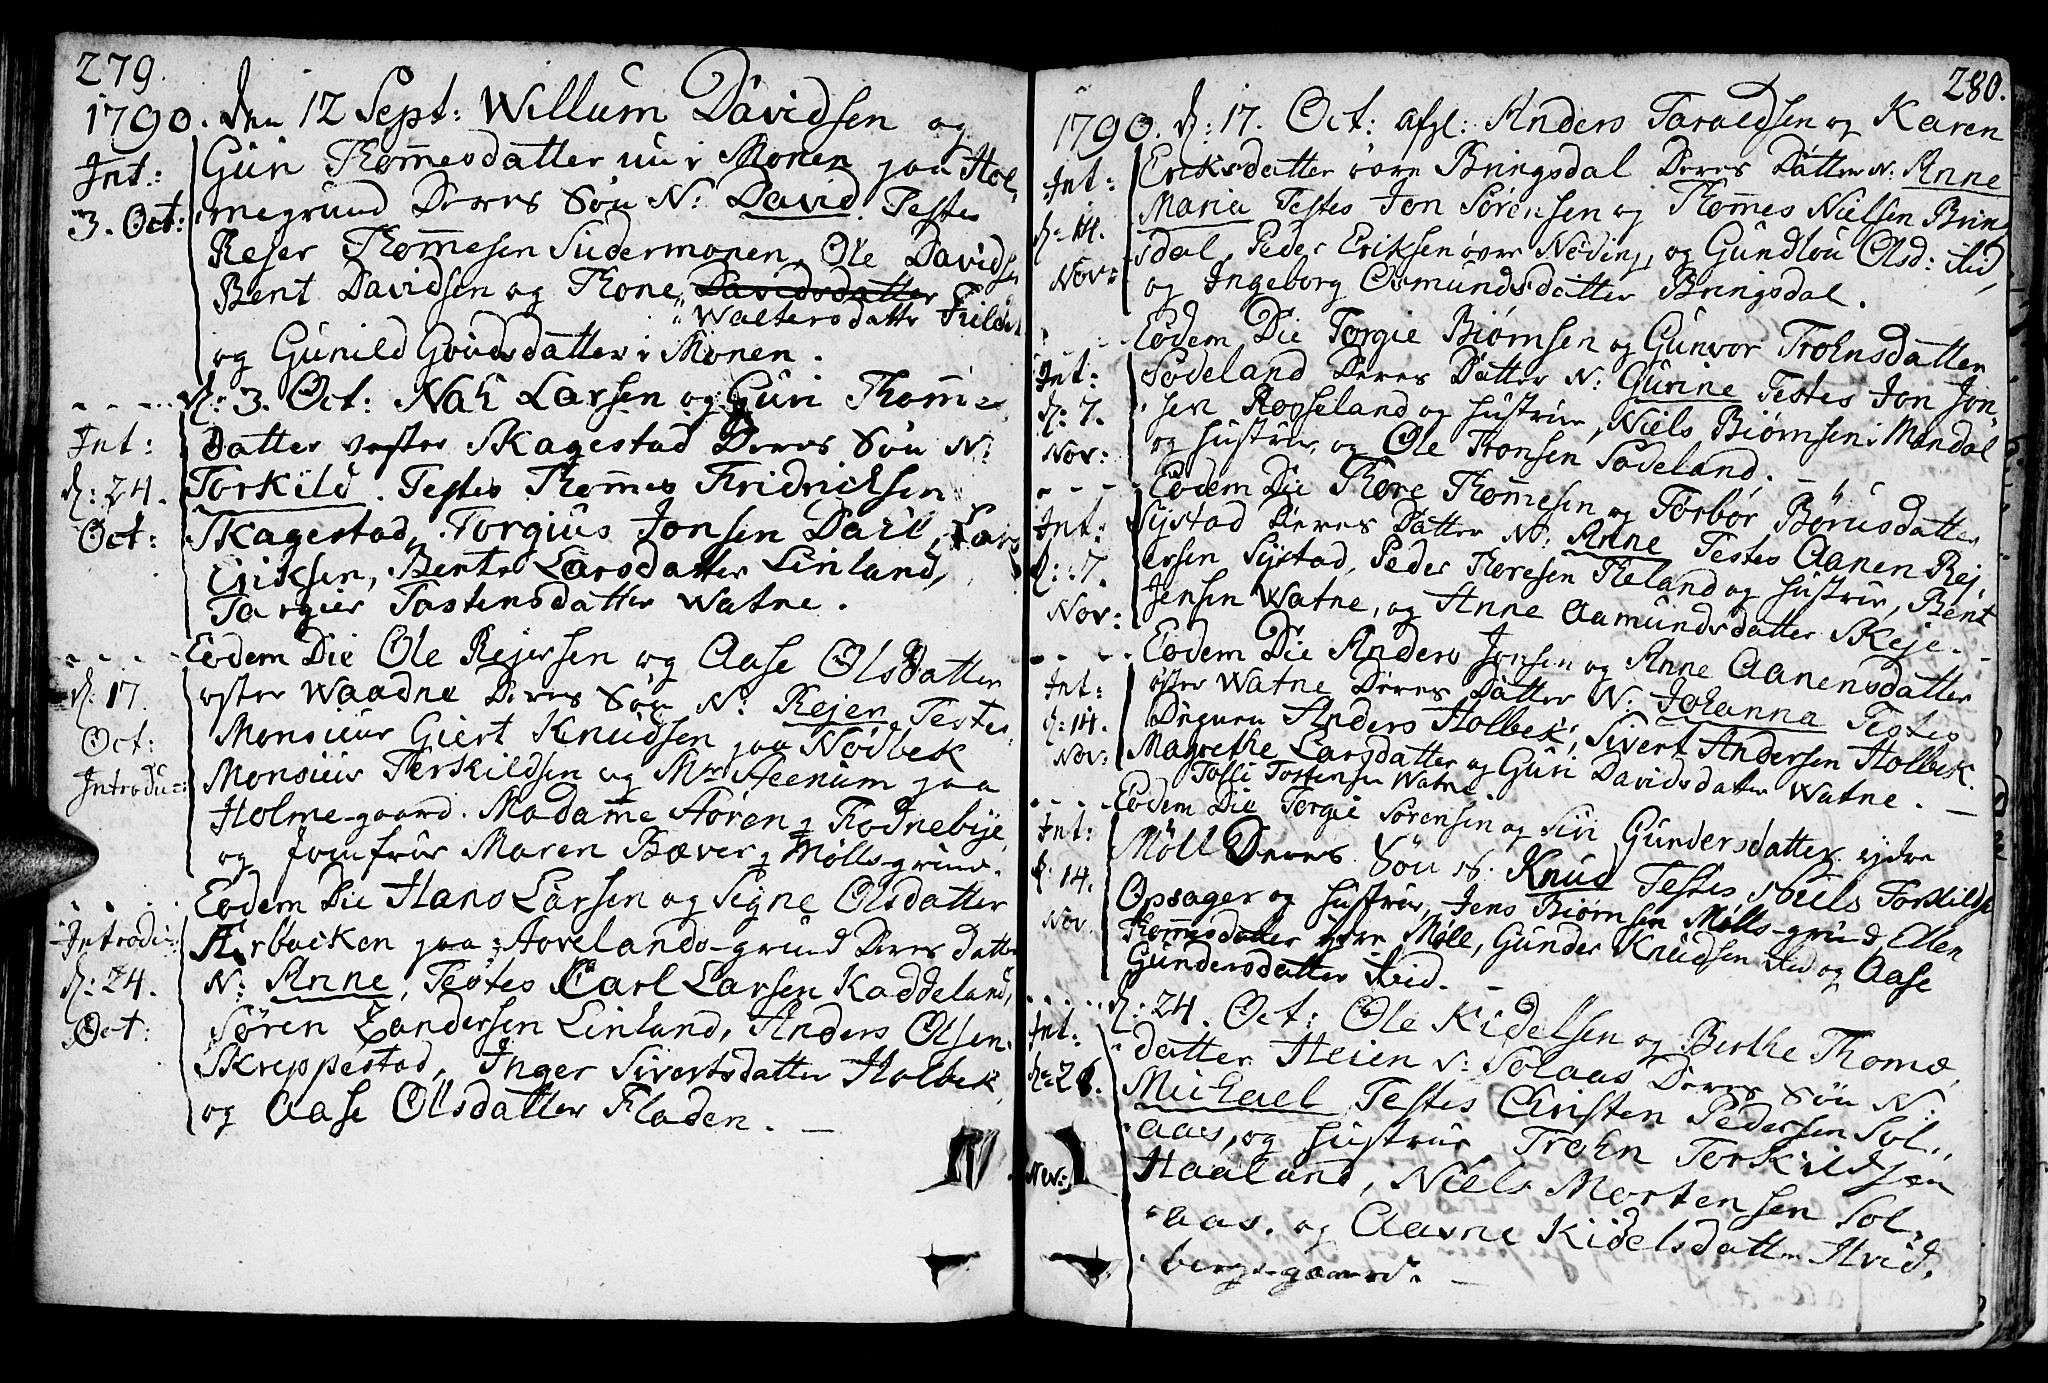 279.
1790. den 12 Sept: Willum Davidsen og
Guri Thom̄esdatter nu i Monen paa Hol-
megrund Deres Søn N: David. Testes
Rejer Thom̄esen Sudermonen, Ole Davids
Bent Davidsen og Thone Davidsdatter
Waltersdatter
og Gunild Goudsdatter i Monen.
Int:
3. Oct:
d: 3. Oct: Nah Larsen og Guri Thom̄es
datter vester Skagestad Deres Søn N:
Torkild. Testes Thom̄es Fridrichsen
Skagestad, Torgius Jonsen Dahl, Lars
Eriksen, Bente Larsdatter Linland,
Targier Tostensdatter Watne.
Int:
d: 24.
Oct:
Eodem Die Ole Rejersen og Aase Olsdatter
øster Waadne Deres Søn N: Rejer. Testes
Monsieur Giert Knudsen paa Nødbek
Monsieur Terskildsen og Mr Steenum paa
Holme-gaard. Madam̄e Støren, Rodnebye,
og Jomfrue Maren Bæver, Mølls-grund.
d: 17.
Oct:
Introdu:
Eodem Die Hans Larsen og Signe Olsdatter
Storbacken paa Aavelands-grund Deres datter
N: Anne, Testes Carl Larsen Kaddeland,
Søren Zandersen Linland, Anders Olsen
Skreppestad, Inger Sivertsdatter Holbek
og Aase Olsdatter Fladen.
Introdu:
d: 24.
Oct:
280.
1790. d: 17. Oct: afgl: Anders Taraldsen og Karen
Eriksdatter øvre Bringsdal Deres Datter N: Anne
Maria Testes Jon Sørensen og Thom̄es Nielsen Bring
sdal, Peder Eriksen over Nøding, og Gundlou Olsd: ibid,
og Ingeborg Osmundsdatter Bringsdal.
Int:
d: 14.
Nov:
Eodem Die Torgie Biørnsen og Gunvor Trohnsdatter
Sødeland Deres Datter N: Gurine Testes Jon Jon-
sen Rosseland og Hustrue, Niels Biørnsen i Mandal
og Hustrue, og Ole Tronsen Sødeland.
Int:
d: 7.
Nov:
Eodem Die Thore Thom̄esen og Torbør Børusdatter
Systad Deres Datter N: Anne Testes Aanen Rej-
ersen Systad, Peder Thoresen Treland og Hustrue, Bent
Jensen Watne, og Anne Aamundsdatter Skeje.
Int:
d: 7.
Nov:
Eodem Die Anders Jonsen og Anne Aanensdatter
øster Watne Deres Datter N: Johanna Testes
Anders Holbek, Sivert Andersen Holbek
Magrethe Larsdatter og Guri Davidsdatter Watne.
Tossi Tostensen Watne.
Int:
d: 14.
Nov:
Eodem Die Torgie Sørensen og Siri Gundersdatter ydre
Møll Deres Søn N. Knud Testes, Niels Torkilds
Opsager og Hustrue, Jens Biørnsen Mølls-grund, Ellen
Thom̄esdatter ydre Møll, Gunder Knudsen ibid og Aase
Gundersdatter ibid.
Int:
d: 14.
Nov
d: 24. Oct: Ole Kidelsen og Berthe Thomæ
datter Heien N: Solaas Deres Søn N:
Michael Testes Christen Pedersen Sol-
aas, og Hustrue, Trohn Torkildsen
Haaland, Niels Mortensen Sol-
aas. og Aasne Kidelsdatter Hvid-
bergs-gaard.
Int:
d: 28.
Nov: